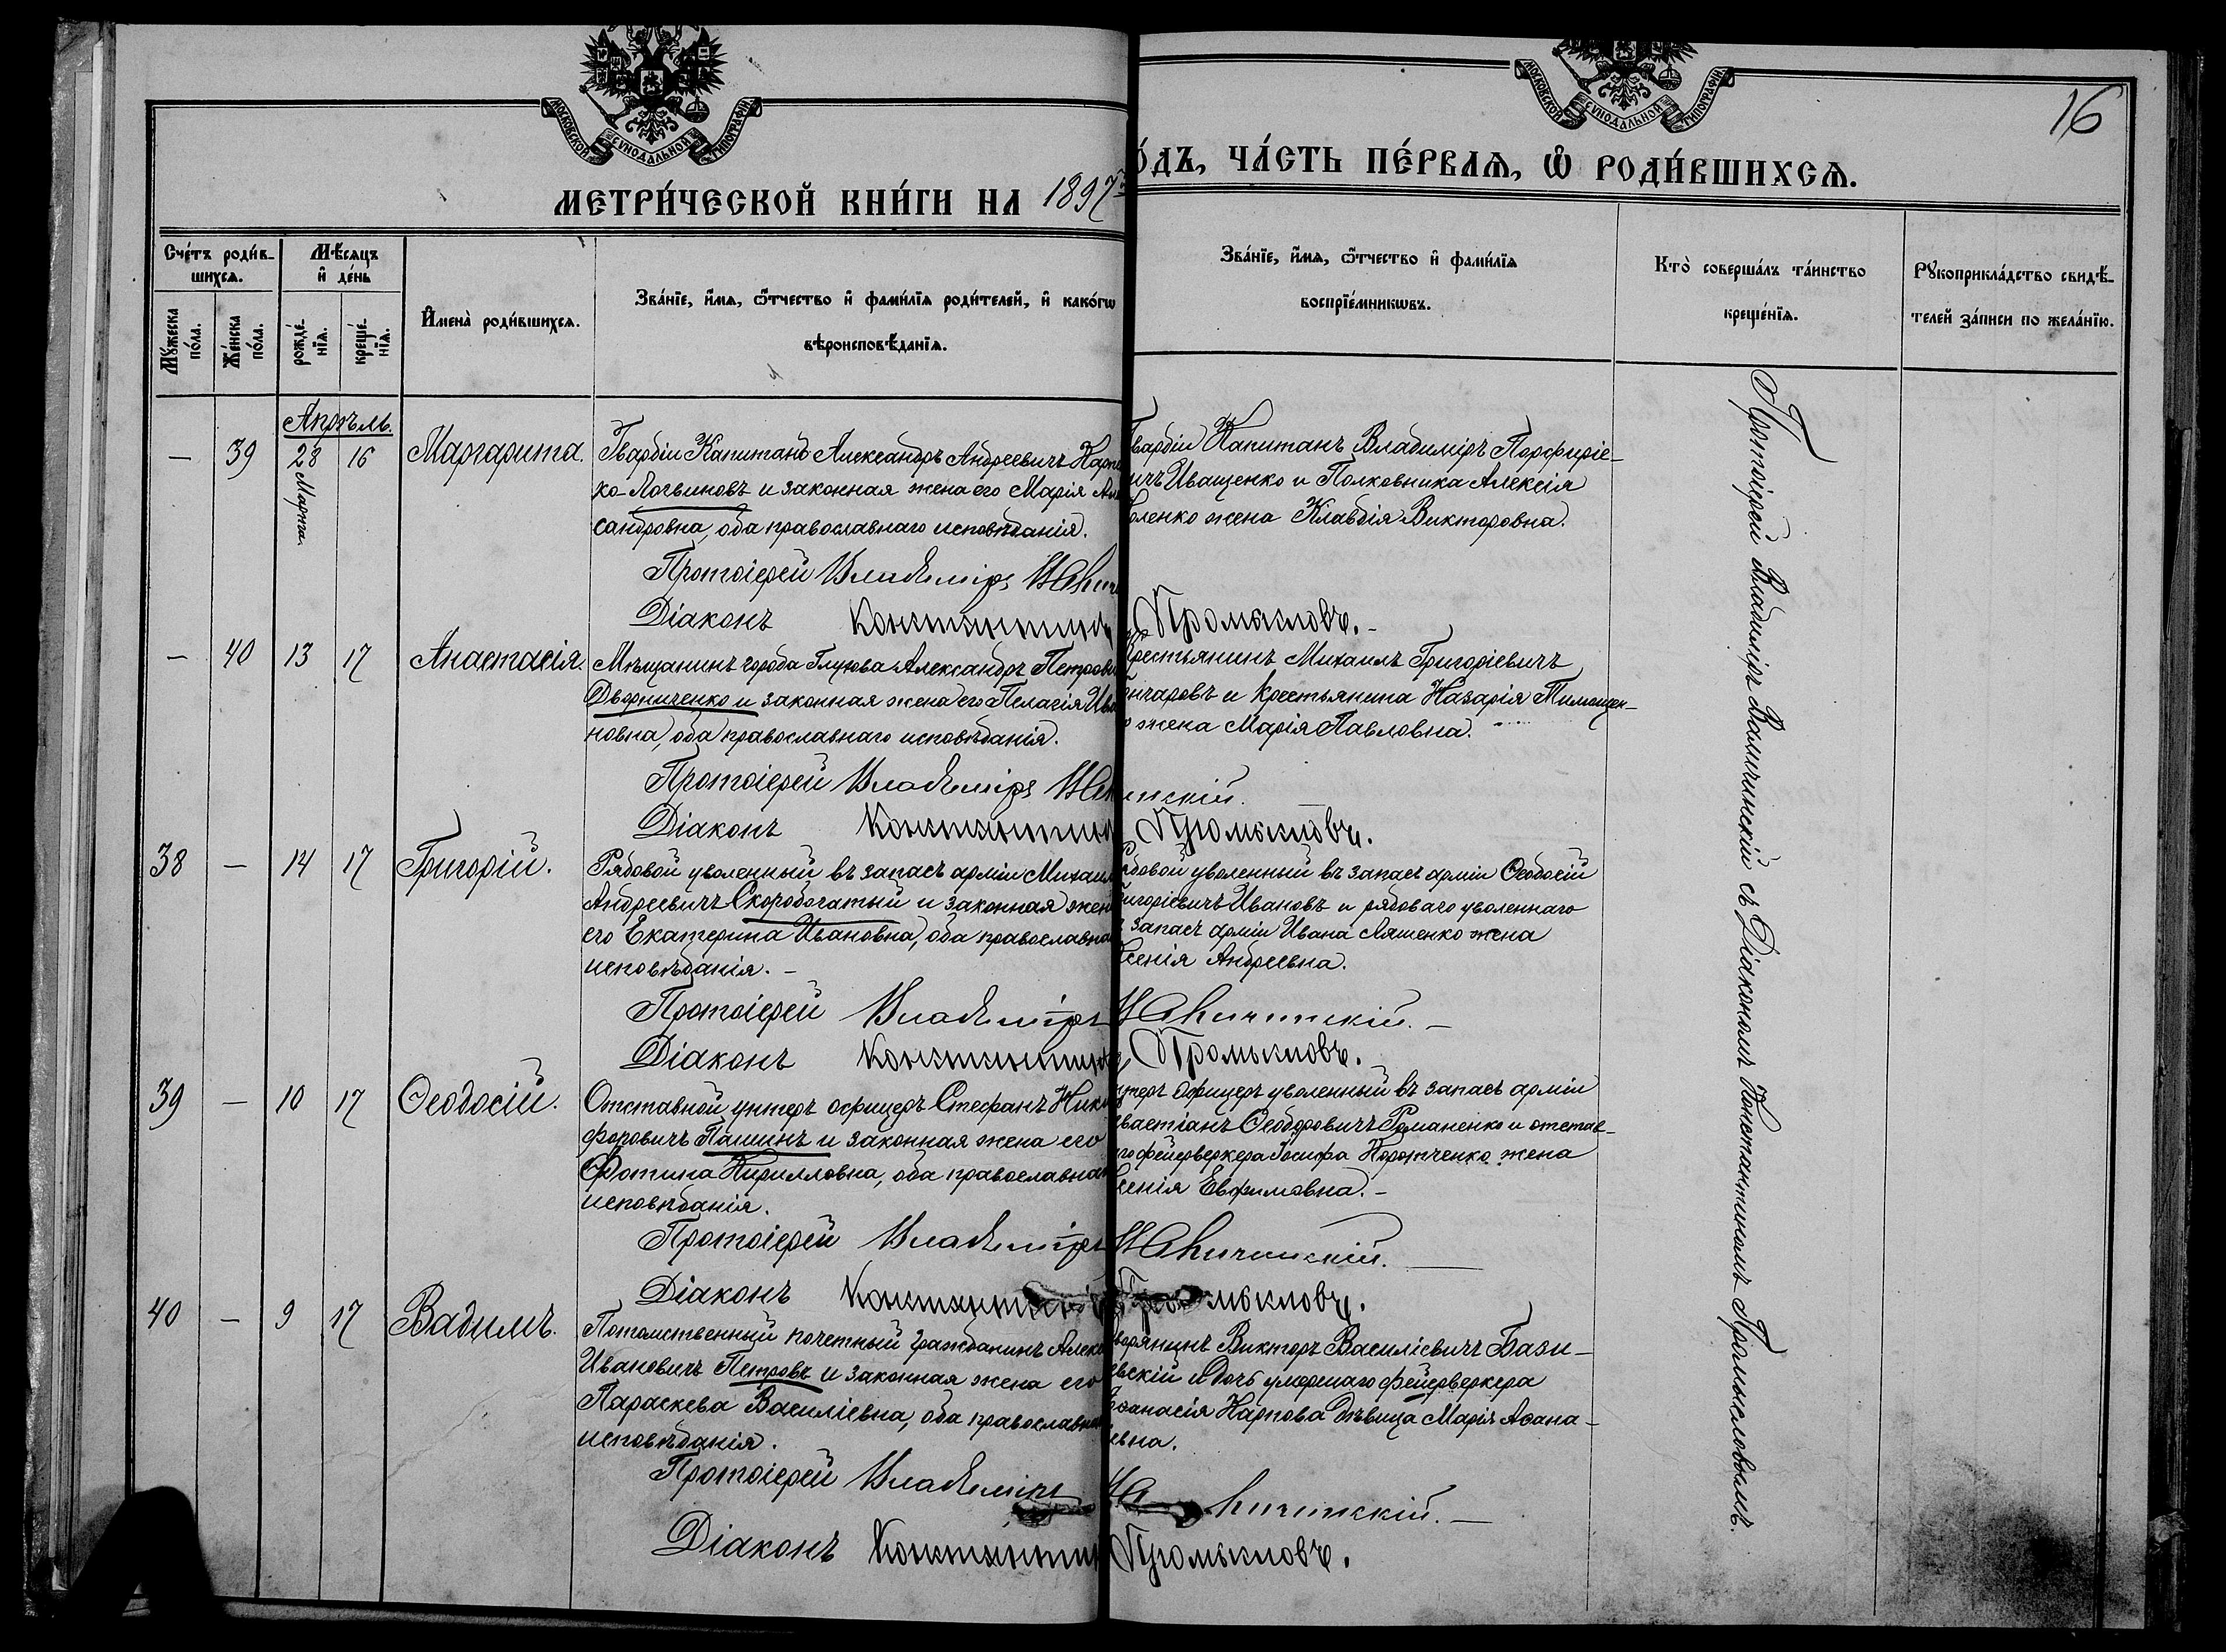 МОСКОВСКОЙ СѴНОДАЛЬНОЙ ТИПОГРАФІИ
МОСКОВСКОЙ СѴНОДАЛЬНОЙ ТИПОГРАФІИ
16
МЕТРИ́ЧЕСКОЙ КНИ́ГИ НА 1897
О́ДЪ, ЧА́СТЬ ПЕ́РВАѦ, Ѡ҆ РОДИ́ВШИХСѦ.
Сче́тъ роди́в-
шихсѧ.
Мѣ́сѧцъ
и҆ де́нь
Мꙋ́жеска
по́ла.
Же́нска
по́ла.
рожде́-
нїѧ.
креще́-
нїѧ.
И҆мена̀ роди́вшихсѧ.
Зва́нїе, и҆́мѧ, ѻ҆́тчество и҆ фами́лїѧ роди́телей, и҆ како́гѡ
вѣроисповѣ́данїѧ.
Зва́нїе, и҆́мѧ, ѻ҆́тчество и҆ фами́лїѧ
воспрїе́мникѡвъ.
Кто̀ соверша́лъ та́инство
креще́нїѧ.
Рꙋкоприкла́дство свидѣ́-
телей за́писи по жела́нїю.
Апрѣль.
— 39 28 Марта 16 Маргарита.
Гвардіи Капитанъ Александръ Андреевичъ
ко-Логвиновъ и законная жена его Марія
сандровна, оба православнаго исповѣданія.
Протоіерей Владиміръ
Діаконъ Константинъ Промысловъ.
гвардіи Капитанъ Владиміръ Порфиріе-
ичъ Иващенко и Полковника Алексія
оленко жена Клавдія Викторовна.
— 40 13 17 Анастасія.
Мѣщанинъ города Глухова Александръ Петрови
Дворниченко и законная жена его Пелагія Ива
новна, оба православнаго исповѣданія.
Протоіерей Владиміръ инскій.
Діаконъ Константинъ Промысловъ.
Крестьянинъ Михаилъ Григоріевичъ
ончаровъ и крестьянина Назарія Тимощен-
о жена Марія Павловна.
38 — 14 17 Григорій.
Рядовой уволенный въ запасъ арміи Михаил
Андреевичъ Скоробогатый и законная жен
его Екатерина Ивановна, оба православна
исповѣданія. —
Протоіерей Владиміръ
Діаконъ Константинъ Промысловъ.
ядовой уволенный въ запасъ арміи Ѳеодосій
ригоріевичъ Ивановъ и рядоваго уволеннаго
запасъ арміи Ивана Ляшенко жена
сенія Андреевна.
39 — 10 17 Ѳеодосій.
Отставной унтеръ офицеръ Стефанъ Ники
форовичъ Пашинъ и законная жена его
Фотина Кирилловна, оба православна
исповѣданія.
Протоіерей Владиміръ
Діаконъ Константинъ Промысловъ.
нтеръ офицеръ уволенный въ запасъ арміи
вастіанъ Ѳеодоровичъ Романенко и отстав-
го фейерверкера Іосифа Коротченко жена
сенія Евфимовна. —
40 — 9 17 Вадимъ.
Потомственный почетный гражданинъ Алек
Ивановичъ Петровъ и законная жена его
Параскева Василіевна, оба православна
исповѣданія.
Протоіерей Владиміръ
Діаконъ Константинъ Промысловъ.
ворянинъ Викторъ Василіевичъ Бази-
евскій и дочь умершаго фейерверкера
Аѳанасія Карпова дѣвица Марія Аѳана-
евна.
Протоіерей Владиміръ съ Діакономъ Константиномъ Промысловымъ.